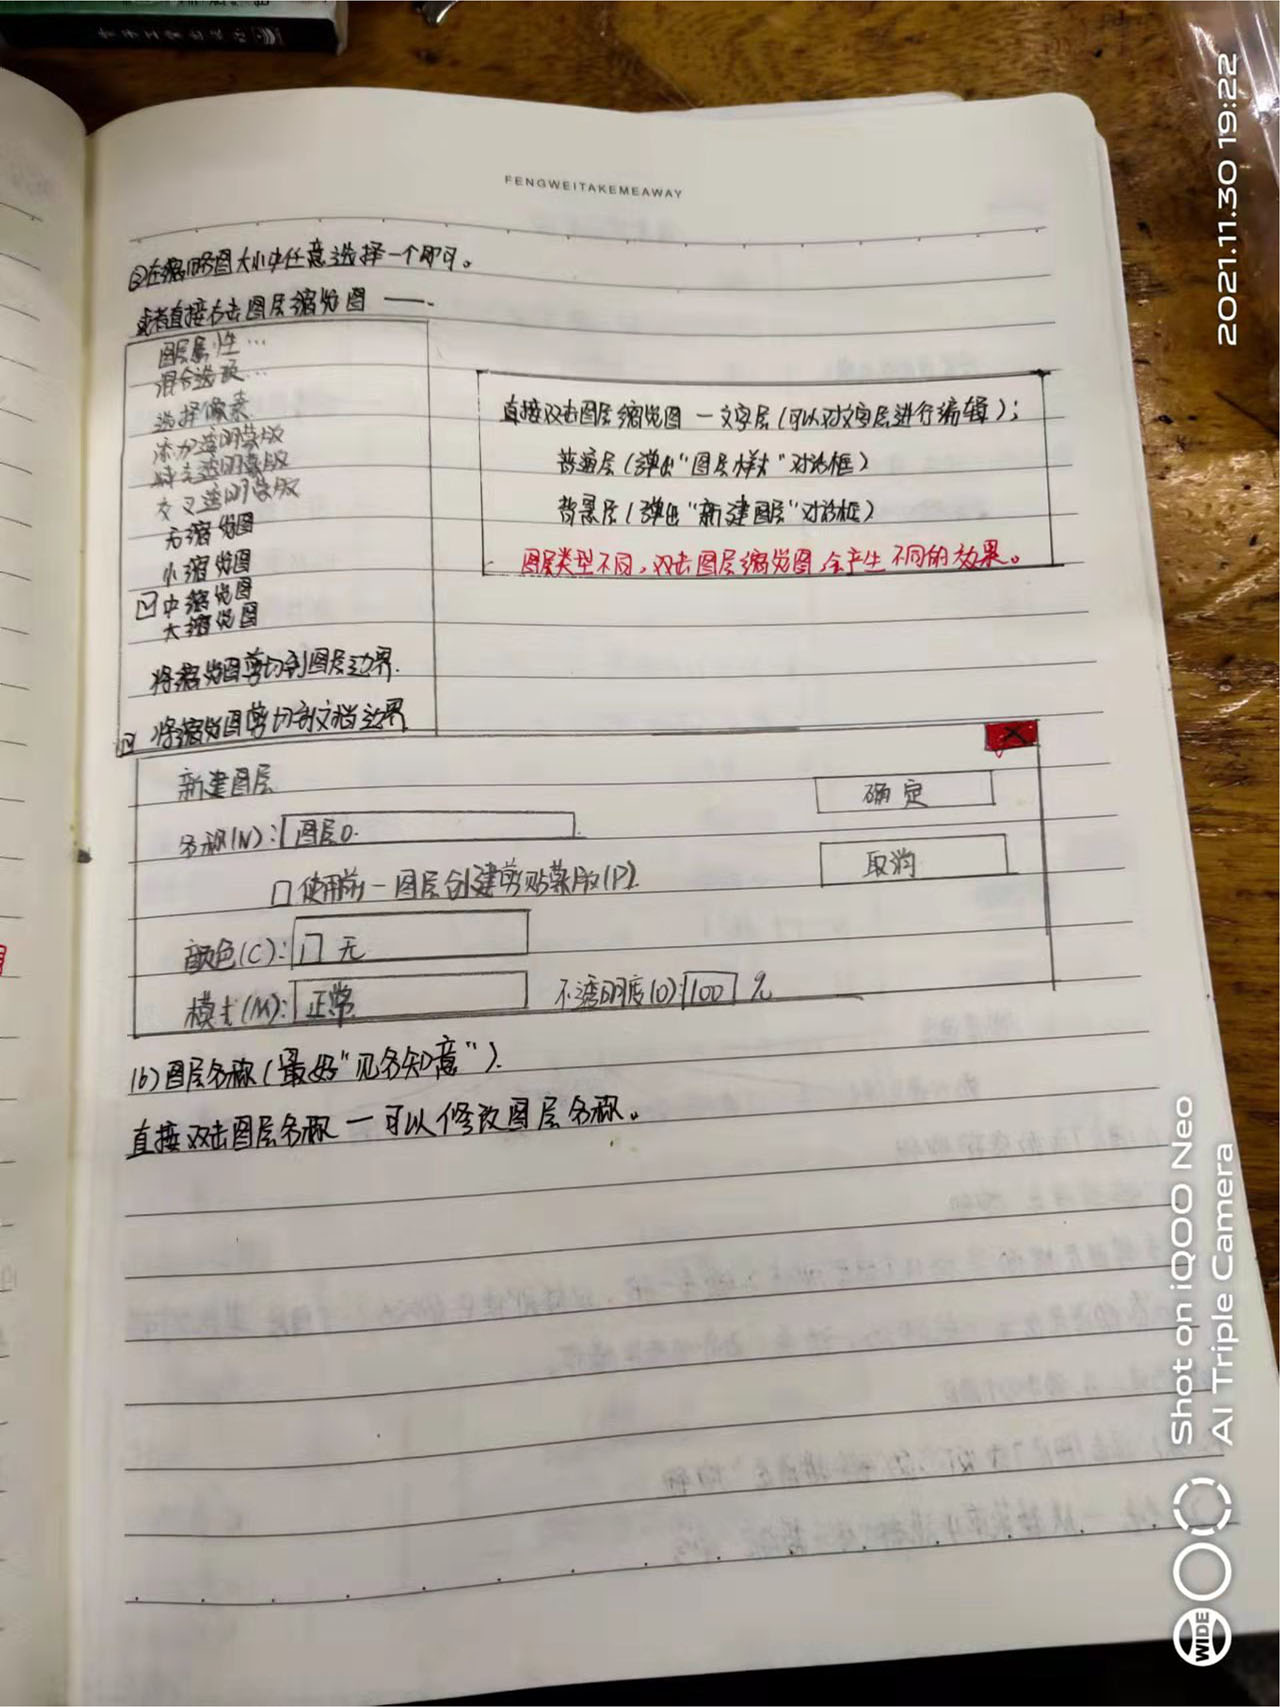 FENGWEITAKEMEAWAY
②在缩略图大小中任意选择一个即可。
或者直接右击图层缩览图 ——.
图层属性…
混合选项…
选择像素
添加透明蒙版
减去透明蒙版
交叉透明蒙版
无缩览图
小缩览图
☑中缩览图
大缩览图
将缩览图剪切到图层边界.
☑ 将缩览图剪切到文档边界
直接双击图层缩览图 — 文字层(可以对文字层进行编辑);
普通层(弹出"图层样式"对话框)
背景层(弹出"新建图层"对话框)
图层类型不同,双击图层缩览图,会产生不同的效果。
X
新建图层
确定
名称(N): 图层0.
取消
口 使用前一图层创建剪贴蒙版(P).
颜色(C): 口 无
模式(M): 正常 不透明度(O): 100 %
(b)图层名称(最好"见名知意").
直接双击图层名称 — 可以修改图层名称。
2021.11.30 19:22
Shot on iQOO Neo
AI Triple Camera
WIDE